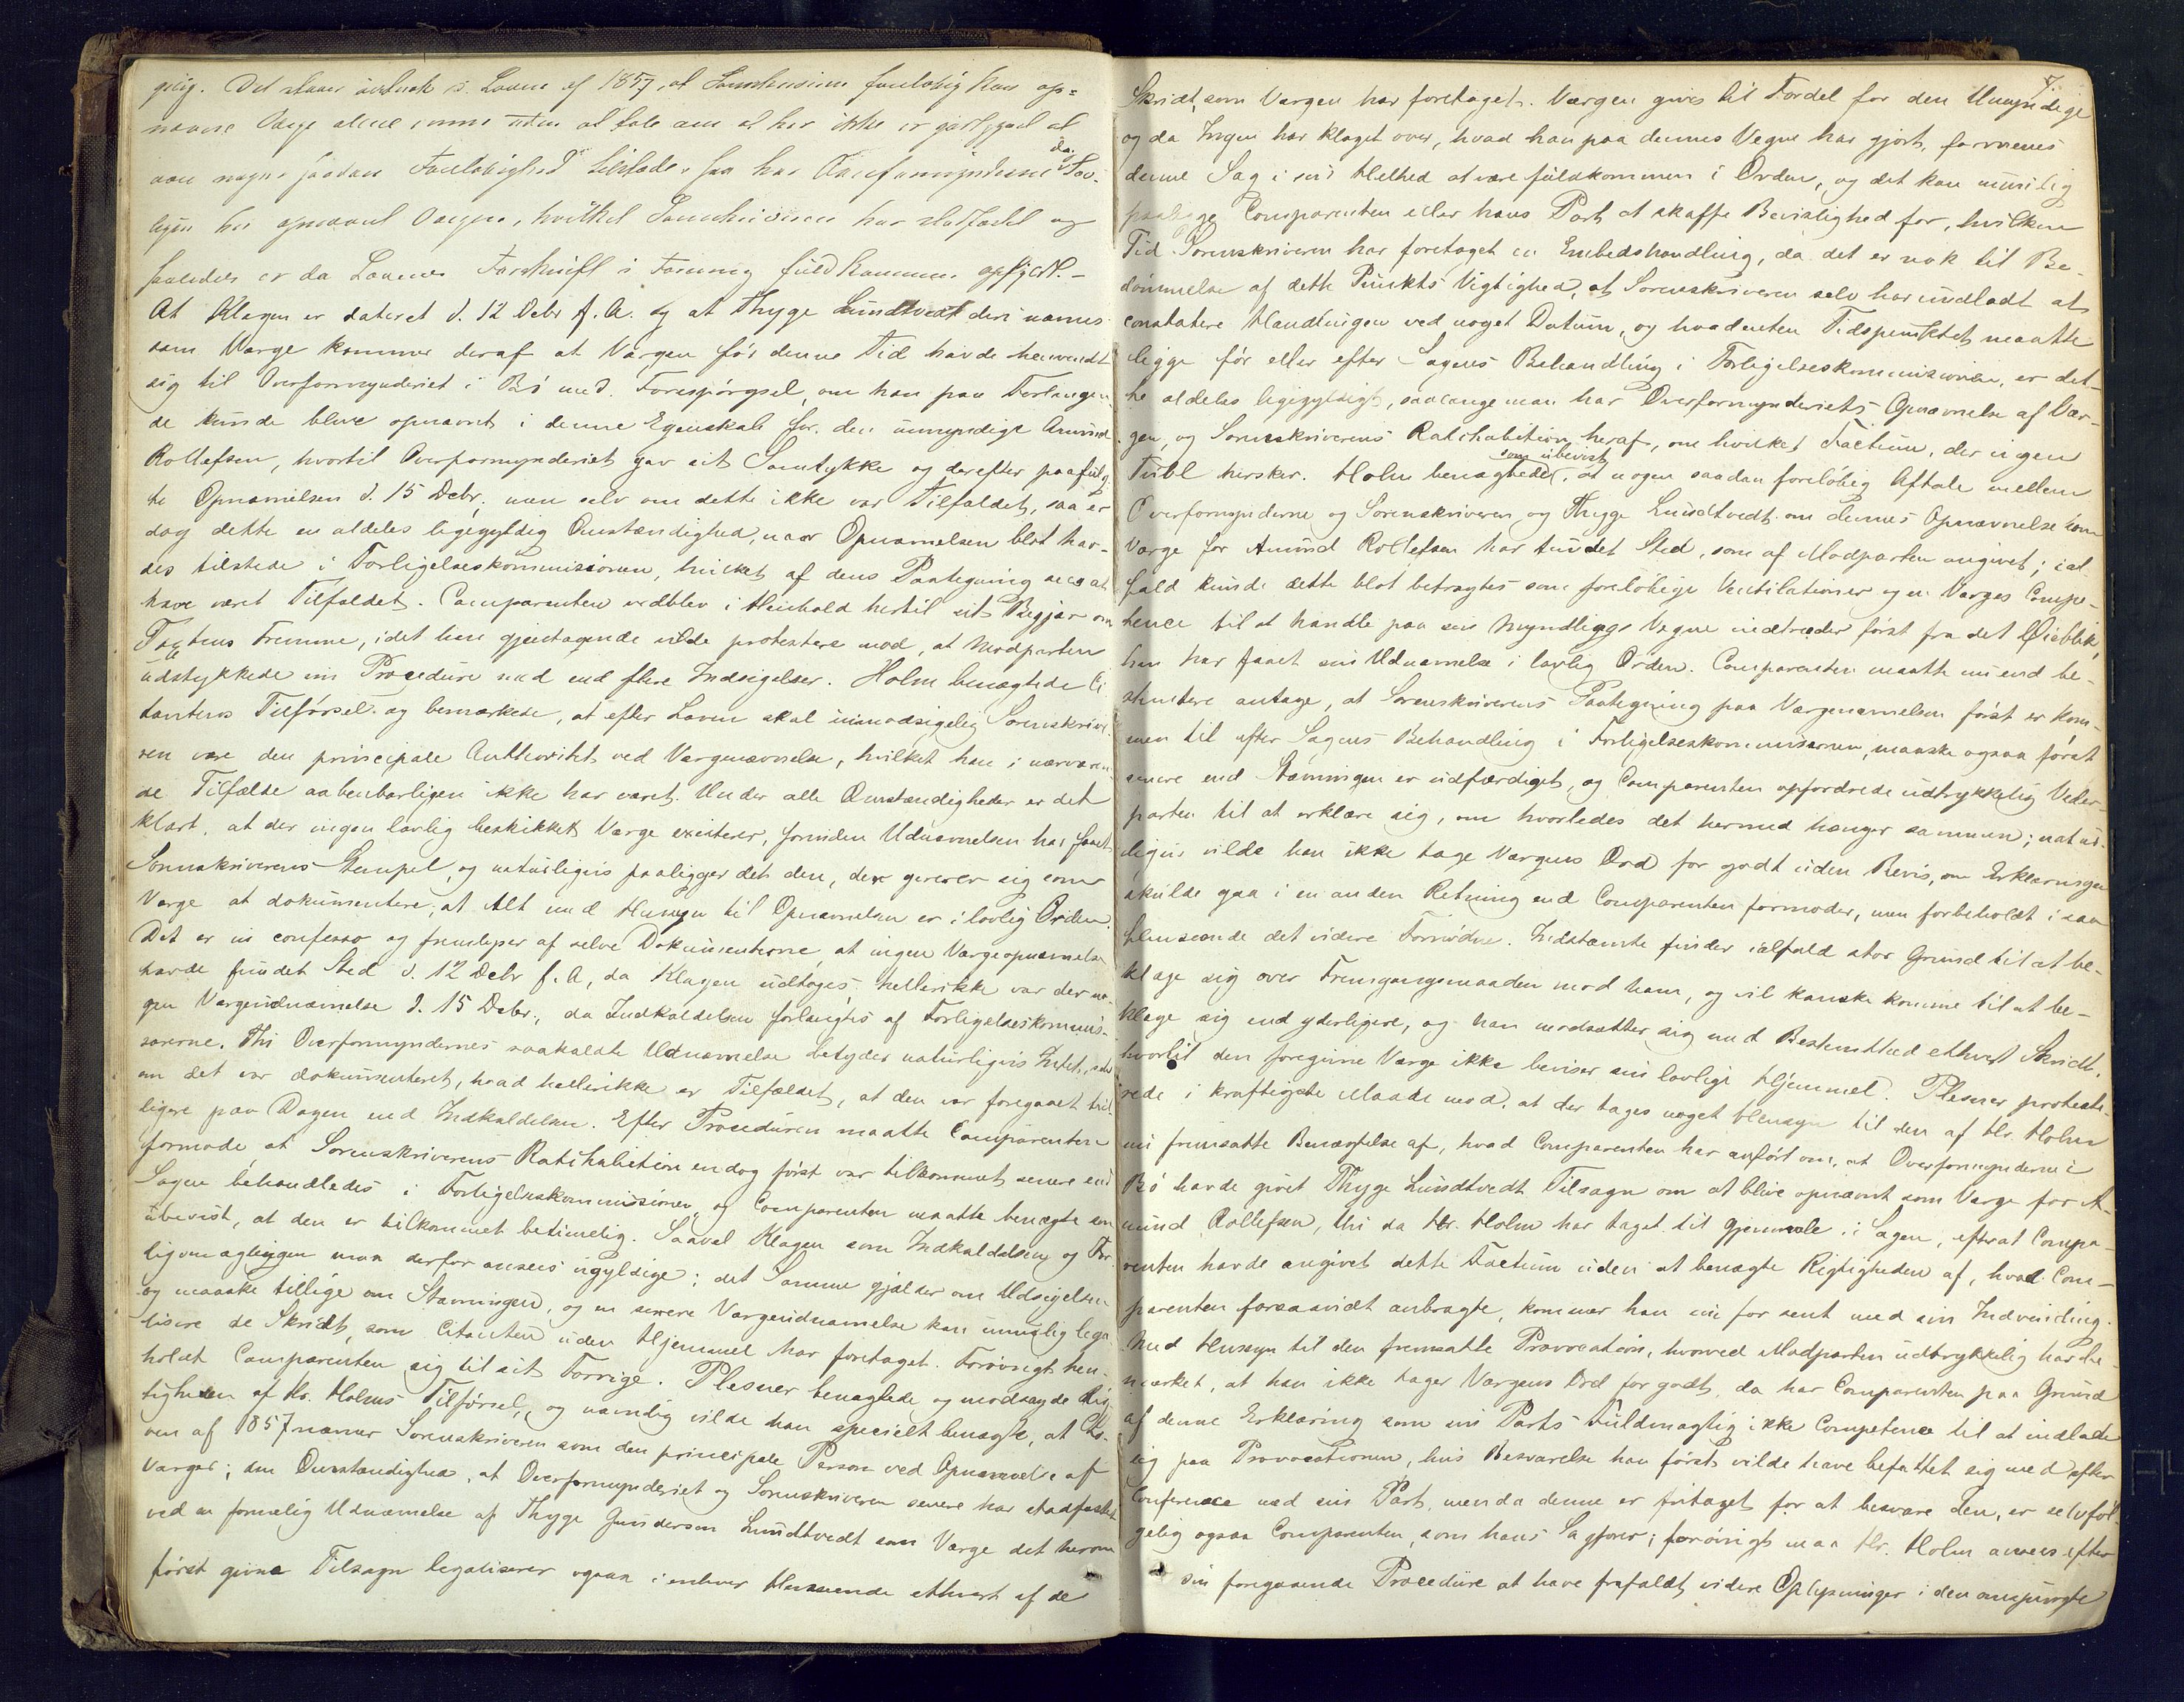 gelig. Det staaer udtrykt i Loven af 1857, at Sorenskriveren foreløbig kan op-
nævne Værge alene, men uden at tale om at her ikke er godtgjort at
van nogen saadan Foreløbighed tilstede, saa har Overformynderne da lov-
ligen her opnævnt Værgen, hvilket Sorenskriveren har stadfæstet og
saaledes er da Lovens Forskrift i Formen fuldkommen opfyldt. –
At Klagen er dateret d. 12 Debr f. A. og at Thyge Lundtvedt deri nævnes
som Værge kommer deraf at Værgen før denne Tid havde henvendt
sig til Overformynderiet i Bø med Forespørgsel, om han paa Forlangen-
de kunde blive opnævnt i denne Egenskab for den umyndige Amund
Rollefsen, hvortil Overformynderiet gav sit Samtykke og derefter paafulg-
te Opnævnelsen d. 15 Debr; men selv om dette ikke var Tilfældet, saa er
dog dette en aldeles ligegyldig Omstændighed, naar Opnævnelsen blot hav-
des tilstede i Forligelseskommissionen, hvilket af dens Paategning sees at
have været Tilfældet. Comparenten vedblev i Henhold hertil sit Begjær om
Sagens Fremme, idet han gjentagende vilde protestere mod, at Modparten
udstykkede sin Procedure med end flere Indsigelser. Holm benægtede Ci-
tantens Tilførsel og bemærkede, at efter Loven skal uimodsigelig Sorenskrive-
ren være den principale Authoritet ved Værgenævnelse, hvilket han i nærværen-
de Tilfælde aabenbarligen ikke har været. Under alle Omstændigheder er det
klart, at der ingen lovlig beskikket Værge existerer, forinden Udnævnelsen har faaet
Sorenskriverens Stempel, og naturligvis paaligger det den, der gererer sig som
Værge at dokumentere, at Alt med Hensyn til Opnævnelsen er i lovlig Orden.
Det er in confesso og fremlyser af selve Dokumenterne, at ingen Værgeopnævnelse
havde fundet Sted d. 12 Debr f. A, da Klagen udtoges. Hellerikke var der no-
gen Værgeudnævnelse d. 15 Debr., da Indkaldelsen forlangtes af Forligelseskommis-
særerne. Thi Overformyndernes saakaldte Udnævnelse betyder naturligvis Intet, selv
om det var dokumenteret, hvad hellerikke er Tilfældet, at den var foregaaet tid-
ligere paa Dagen end Indkaldelsen. Efter Proceduren maatte Comparenten
formode at Sorenskriverens Ratihabition endog først var tilkommet senere end
Sagen behandledes i Forligelseskommissionen, og Comparenten maatte benægte som
ubevist, at den er tilkommet betimelig. Saavel Klagen som Indkaldelsen og For-
ligsmæglingen maa derfor ansees ugyldige; det Samme gjælder om Udsigelsen
og maaske tillige om Stævningen, og en senere Værgeudnævnelse kan umuglig lega-
lisere de Skridt, som Citanten uden Hjemmel har foretaget. Forøvrigt hen-
holdt Comparenten sig til sit Forrige. Plesner benægtede og modsagde Rig-
tigheden af Hr. Holms Tilførsel, og navnlig vilde han specielt benægte, at Lo-
ven af 1857 nævner Sorenskriveren som den principale Person ved Opnævnelse af
Værger; den Omstændighed, at Overformynderiet og Sorenskriveren senere har stadfæstet
ved en formelig Udnævnelse af Thyge Gundersen Lundtvedt som Værge det herom
først givne Tilsagn legaliserer ogsaa i enhver Henseende ethvert af de
7.
Skridt, som Værgen har foretaget. Værgen gives til Fordel for den Umyndige
og da Ingen har klaget over, hvad han paa dennes Vegne har gjort, formenes
denne Sag i sin Helhed at være fuldkommen i Orden, og det kan umulig
paaligge Comparenten eller hans Part at skaffe Bevislighed for, hvilken
Tid Sorenskriveren har foretaget en Embedshandling, da det er nok til Be-
dømmelse af dette Punkts Vigtighed, at Sorenskriveren selv har undladt at
constatere Handlingen ved noget Datum, og hvadenten Tidspunktet maatte
ligge før eller efter Sagens Behandling i Forligelseskommissionen, er det-
te aldeles ligegyldigt, saalænge man har Overformynderiets Opnævnelse af Vær-
gen, og Sorenskriverens Ratihabition heraf, om hvilket Factum, der ingen
Tvivl hersker. Holm benægtede som ubevist, at nogen saadan foreløbig Aftale mellem
Overformynderne og Sorenskriveren og Thyge Lundtvedt om dennes Opnævnelse som
Værge for Amund Rollefsen har fundet Sted, som af Modparten angivet; ial-
fald kunde dette blot betragtes som foreløbige Ventilationer og en Værges Compe-
tence til at handle paa sin Myndlings Vegne indtræder først fra det Øieblik,
han har faaet sin Udnævnelse i lovlig Orden. Comparenten maatte nu end be-
stemtere antage, at Sorenskriverens Paategning paa Værgenævnelsen først er kom-
men til efter Sagens Behandling i Forligelseskommissionen, maaske ogsaa først
senere end Stævningen er udfærdiget, og Comparenten opfordrede udtrykkelig Veder-
parten til at erklære sig, om hvorledes det hermed hænger sammen; natur-
ligvis vilde han ikke tage Værgens Ord for godt uden Bevis, om Erklæringen
skulde gaa i en anden Retning end Comparenten formoder, men forbeholdt i saa
Henseende det videre Fornødne. Indstævnte finder ialfald stor Grund til at be-
klage sig over Fremgangsmaaden mod ham, og vil kanske komme til at be-
klage sig end yderligere, og han modsætter sig med Bestemthed ethvert Skridt,
hvortil den foregivne Værge ikke beviser sin lovlige Hjemmel. Plesner proteste-
rede i kraftigste Maade mod, at der tages noget Hensyn til den af Hr. Holm
nu fremsatte Benægtelse af, hvad Comparenten har anført om, at Overformynderne i
Bø havde givet Thyge Lundtvedt Tilsagn om at blive opnævnt som Værge for A-
mund Rollefsen, thi da Hr. Holm har taget til Gjenmæle i Sagen, efterat Compa-
renten havde angivet dette Factum uden at benægte Rigtigheden af, hvad Com-
parenten forsaavidt anbragte, kommer han nu for sent med sin Indvending.
Med Hensyn til den fremsatte Provocation, hvorved Modparten udtrykkelig har be-
mærket, at han ikke tager Værgens Ord for godt, da har Comparenten paa Grund
af denne Erklæring som sin Parts Fuldmægtig ikke Competence til at indlade
sig paa Provocationen, hvis Besvarelse han først vilde have befattet sig med efter
Conference med sin Part, men da denne er fritaget for at besvare den, er selvføl-
gelig ogsaa Comparenten, som hans Sagfører; forøvrigt maa Hr. Holm ansees efter
sin foregaaende Procedure at have frafaldt videre Oplysninger i den omspurgte